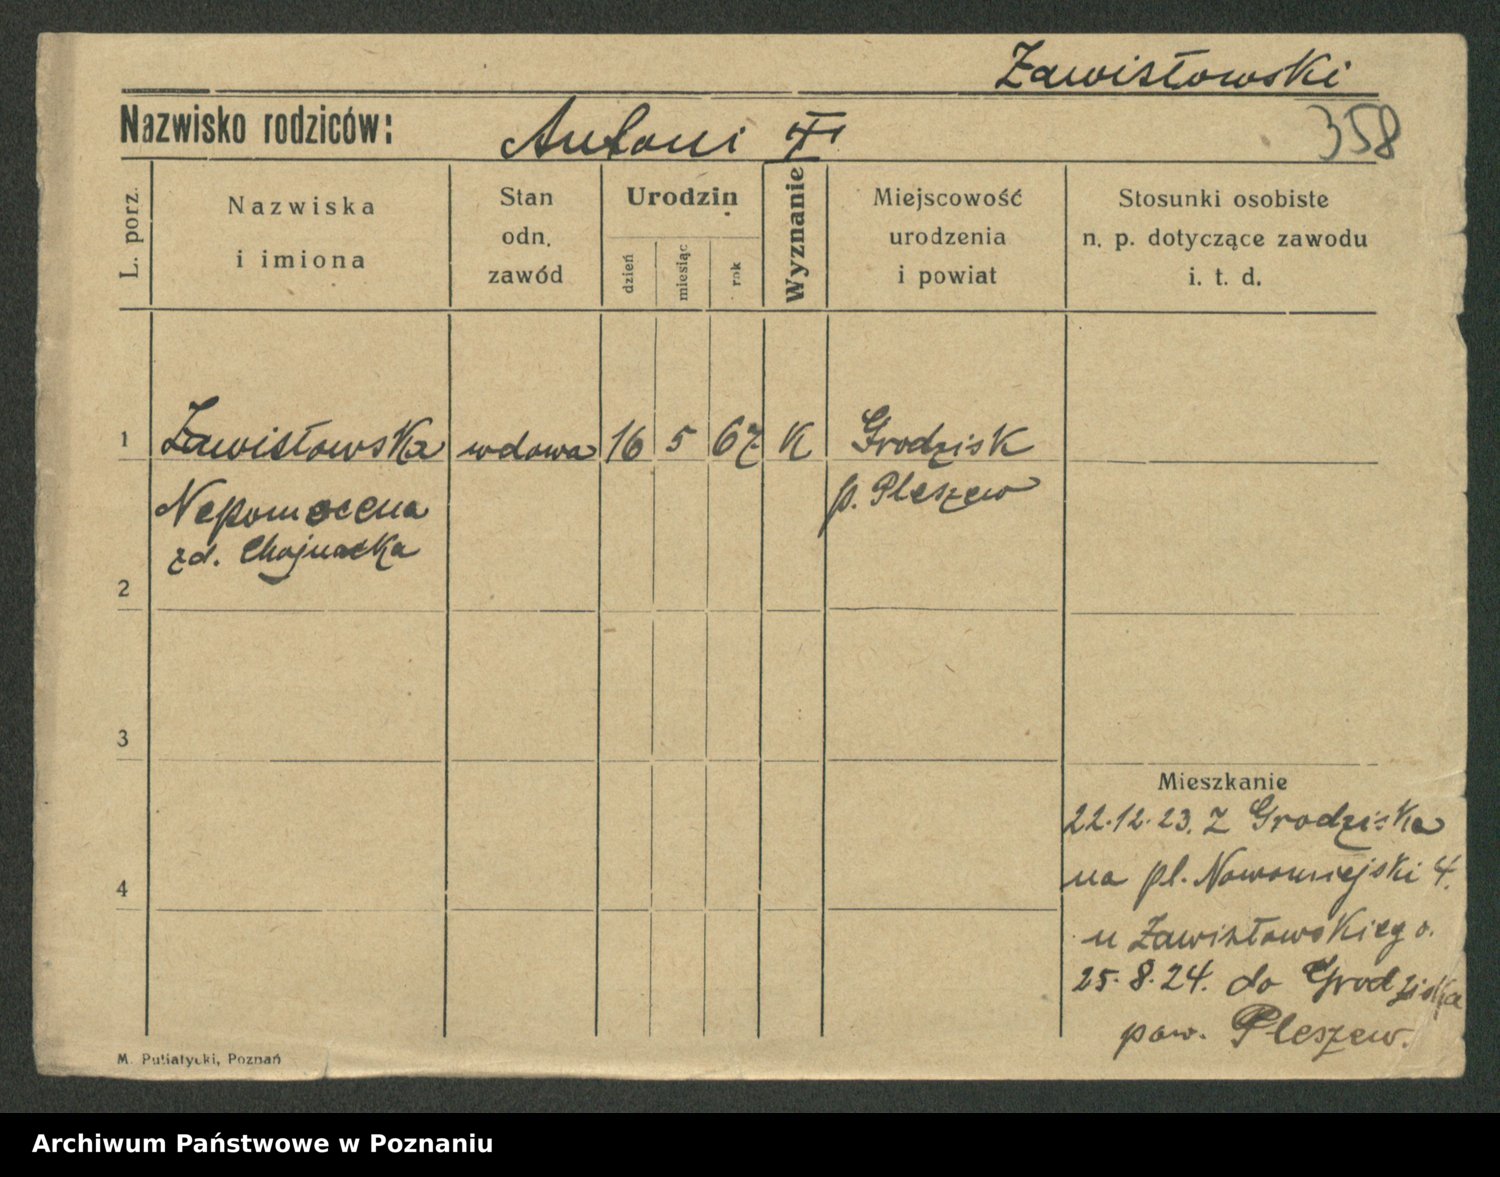 Zawisłowski
Nazwisko rodziców: Antoni
358
L. porz.
Nazwiska
i imiona
Stan
odn.
zawód
Urodzin
dzień
miesiąc
rok
Wyznanie
Miejscowość
urodzenia
i powiat
Stosunki osobiste
n. p. dotyczące zawodu
i. t. d.
1 Zawisłowska wdowa 16 5 67 K Grodzisk
p. Pleszew
Nepomocena
zd. Chojnacka
2
3
4
Mieszkanie
22.12.23. Z Grodziska
na pl. Nowomiejski 4.
u Zawisłowskiego.
25.8.24. do Grodziska
pow. Pleszew.
M. Putiatycki, Poznań
Archiwum Państwowe w Poznaniu